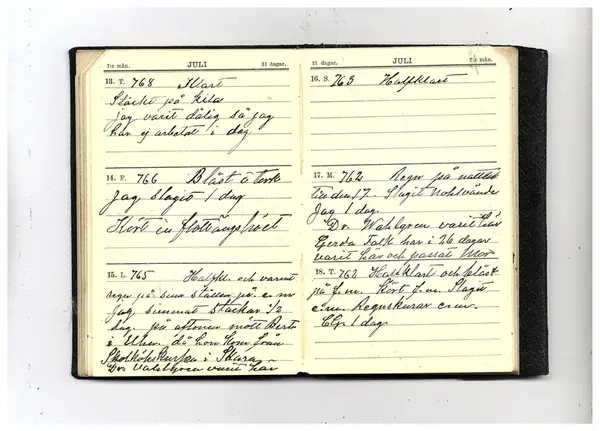 7:e mån. JULI 31 dagar.
13. T. 768 Klart
Slåcht på Kila
jag varit dålig så jag
har ej arbetat i dag
14. F. 766 Blåst o tork
Jag slagit 1 dag
Kört in flottängshöet
15. L. 765 Halfkl. och varmt
regn på sina ställen på e. m
jag summat stackar 1/2
dag. på aftonen mött Berta
i Uhm. då hon kom från
Skolkökskursen i Skara
Dr Vahlgren varit här
31 dagar. JULI 7:e mån.
16. S. 763 Halfklart
17. M. 762 Regn på natten
till den 17. Slagit
Jag 1 dag.
Dr. Wahlgren varit här
Gerda Falk har i 26 dagar
varit här och passat Mor
18. T. 762 Halfklart och blåst
på f.m. Kört f.m. Slagit
e.m. Regnskurar e.m.
1 dag.